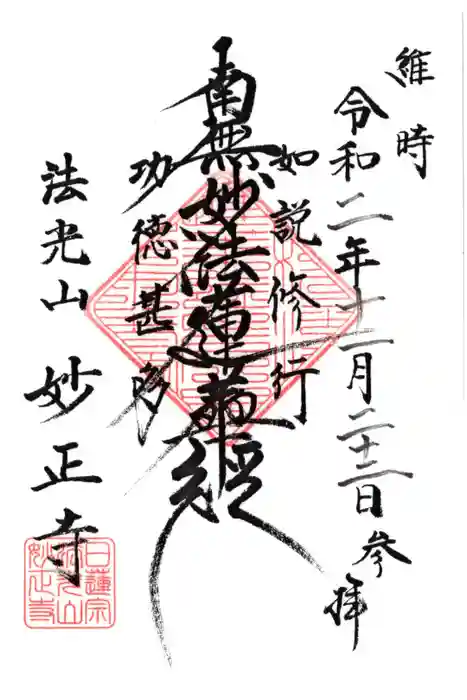 維時
令和二年十一月二十二日参拝
如説修行
南無妙法蓮華経
功徳甚多
法光山
妙正寺
日蓮宗
法光山
妙正寺